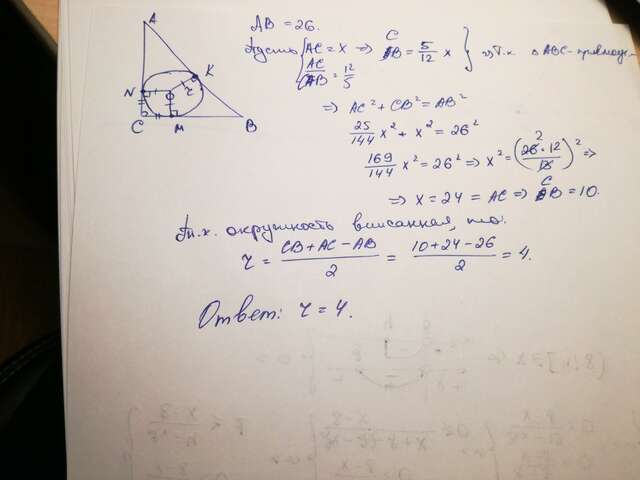 A
K
N
O
r
C
M
B
AB = 26.
Пусть { AC = x => CB = 5/12 x } => т.к. △ABC - прямоуг.
AC/CB = 12/5
=> AC² + CB² = AB²
25/144 x² + x² = 26²
169/144 x² = 26² => x² = (26·12/13)² =>
2
=> x = 24 = AC => CB = 10.
Т.к. окружность вписанная, то:
r = (CB + AC - AB)/2 = (10 + 24 - 26)/2 = 4.
Ответ: r = 4.